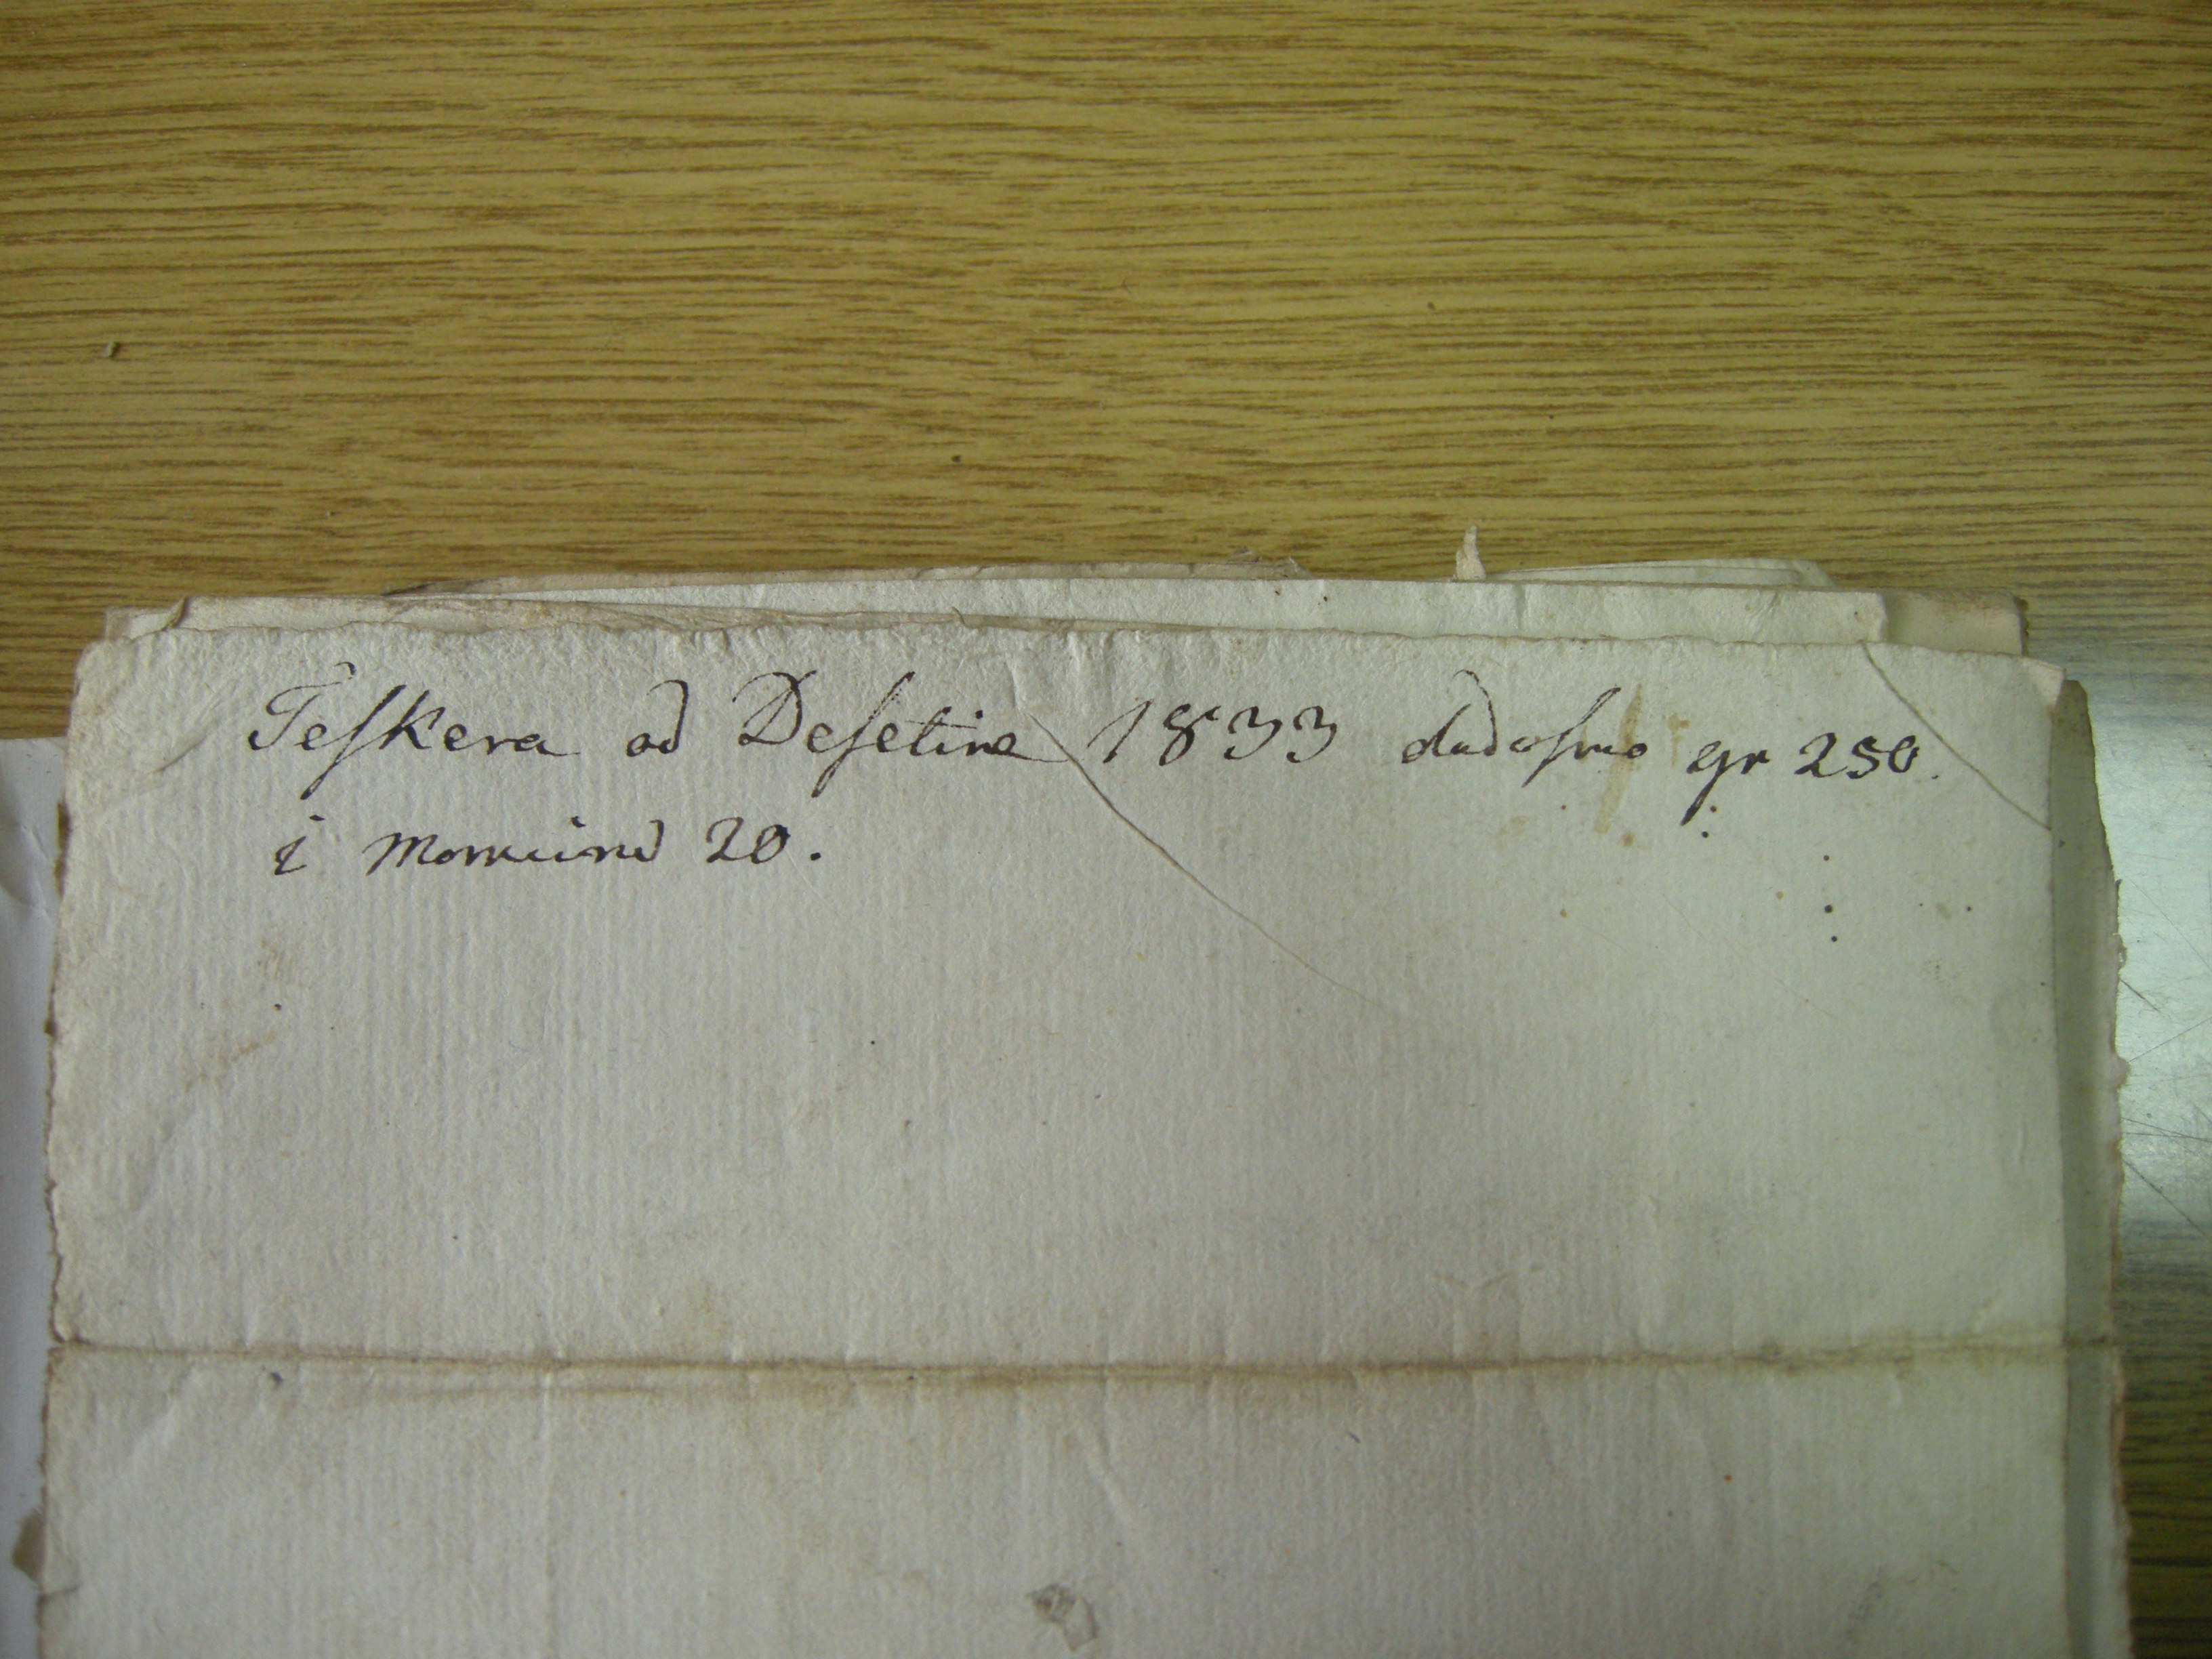 Teſkera od Deſetine 1833 dadoſmo gr 250.
i momcima 20.